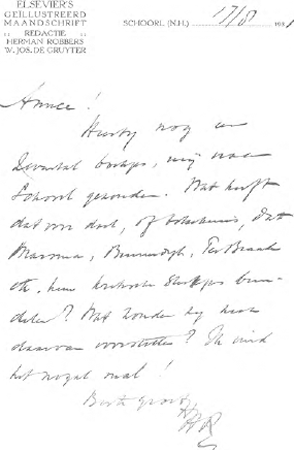 ELSEVIER'S
GEÏLLUSTREERD
MAANDSCHRIFT
:: REDACTIE ::
HERMAN ROBBERS
W. JOS. DE GRUYTER
SCHOORL (N.H.) 17/8 1931
nog een
boekjes, mij naar
Schoorl gezonden. Wat heeft
dat voor doel, of beteekenis, dat
Marsman, Binnendijk, Ter Braak
etc. hun kritische stukjes bun-
delen? Wat zouden zij
daarvan voorstellen? Ik vind
het nogal mal!
Beste groet
HR